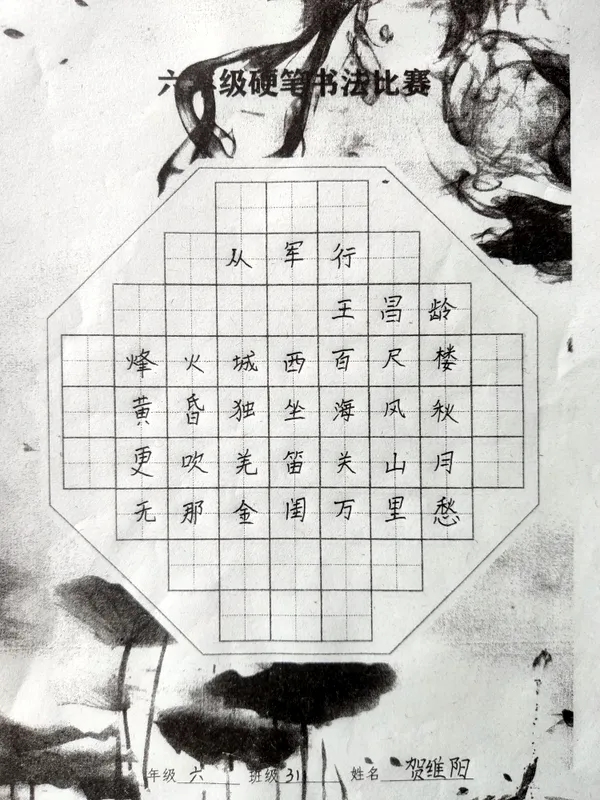 六年级硬笔书法比赛
从军行
王昌龄
烽火城西百尺楼
黄昏独坐海风秋
更吹羌笛关山月
无那金闺万里愁
年级 六 班级 31 姓名 贺维阳